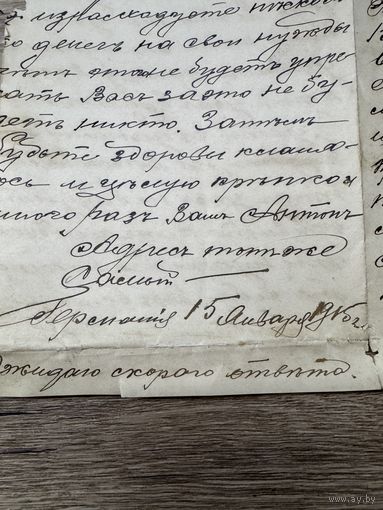 израсходуете нѣкой
го денегъ на свои нужды
это не будетъ упре
кать Васъ за это не бу-
детъ никто. Затѣмъ
Будьте здоровы кланя-
юсь и цѣлую крѣпко и
много разъ Вашъ Антонъ
Адресъ тотъ же
Самый —
Германія 15 Января 1915 г.
Ожидаю скораго отвѣта.
www.ay.by